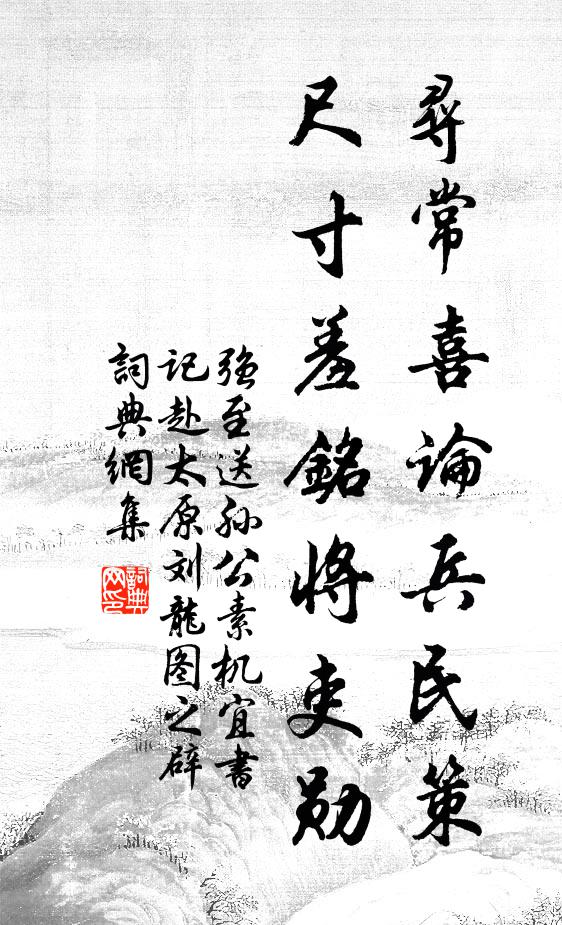 尋常喜論兵民策
尺寸羞銘將吏勋
强至送孙公素机宜書
记赴太原刘龍图之辟
詞典網集
詞典
网印